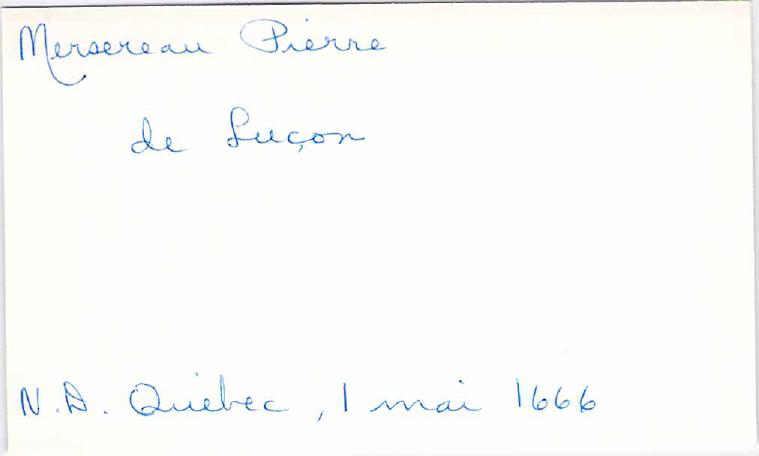 Mersereau Pierre
de Luçon
N.D. Québec, 1 mai 1666